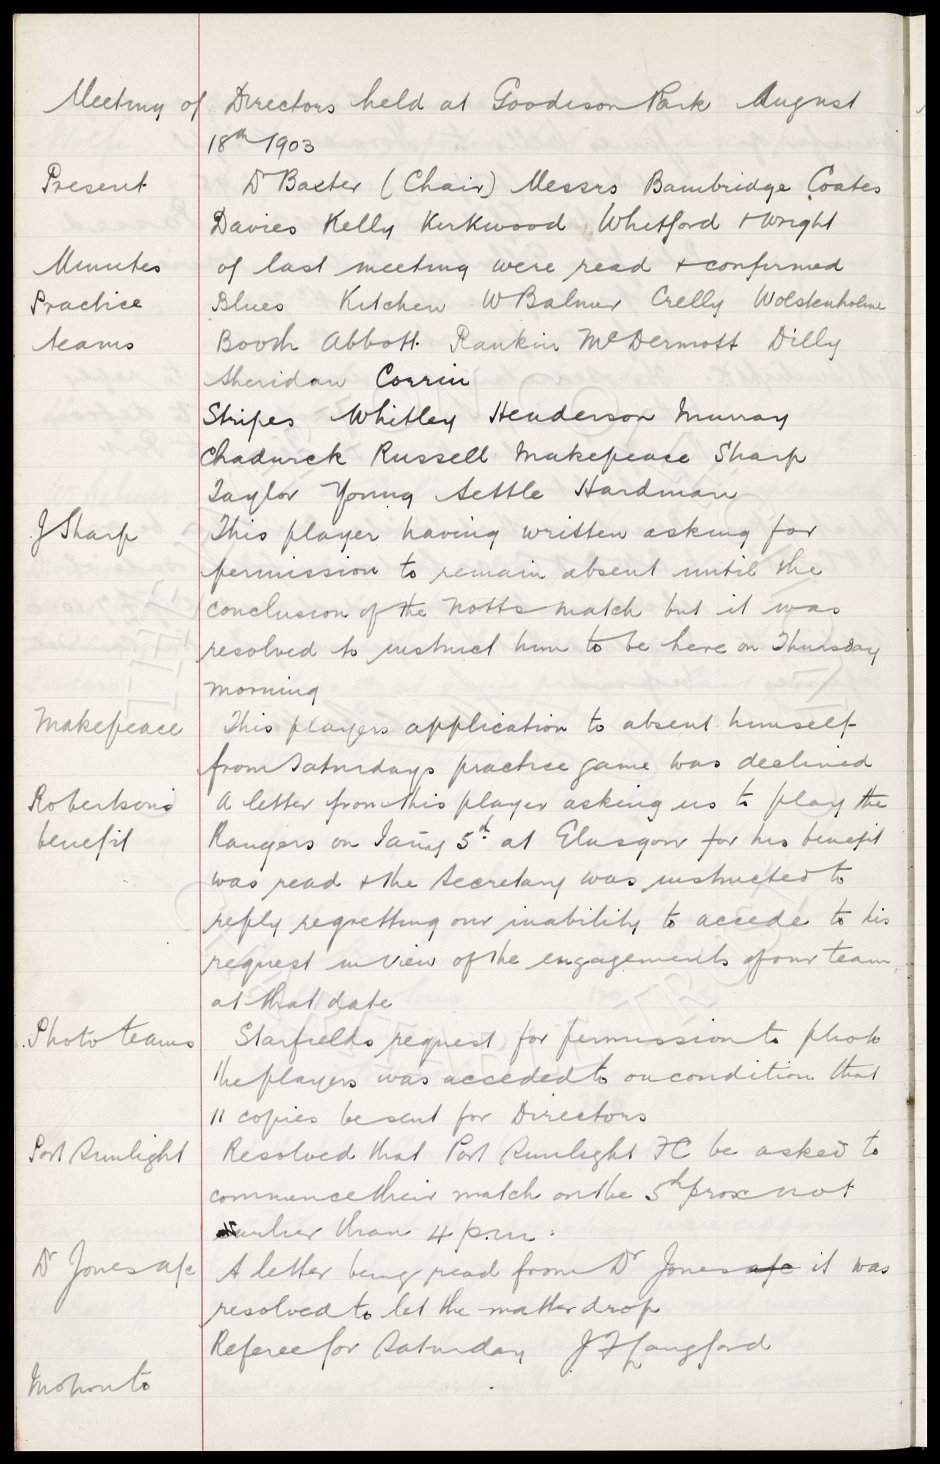 Meeting of Directors held at Goodison Park August
18th 1903
Present Dr Baxter (Chair) Messrs Bainbridge Coates
Davies Kelly Kirkwood Whitford & Wright
Minutes of last meeting were read & confirmed
Practice Blues Kitchen W Balmer Crelly Wolstenholme
teams Booth Abbott Rankin McDermott Dilly
Sheridan Corrin
Stripes Whitley Henderson Murray
Chadwick Russell Makepeace Sharp
Taylor Young Settle Hardman
J Sharp This player having written asking for
permission to remain absent until the
conclusion of the Notts match but it was
resolved to instruct him to be here on Thursday
morning
Makepeace This players application to absent himself
from Saturdays practice game was declined
Robertson's A letter from this player asking us to play the
benefit Rangers on Jany 5th at Glasgow for his benefit
was read & the Secretary was instructed to
reply regretting our inability to accede to his
request in view of the engagements of our team
at that date
Photo teams Starfields request for permission to photo
the players was acceded to on condition that
11 copies be sent for Directors
Port Sunlight Resolved that Port Sunlight FC be asked to
commence their match on the 5th prox not
earlier than 4 p.m.
Dr Jones a/c A letter being read from Dr Jones a/c it was
resolved to let the matter drop
Referee for Saturday J T Langford